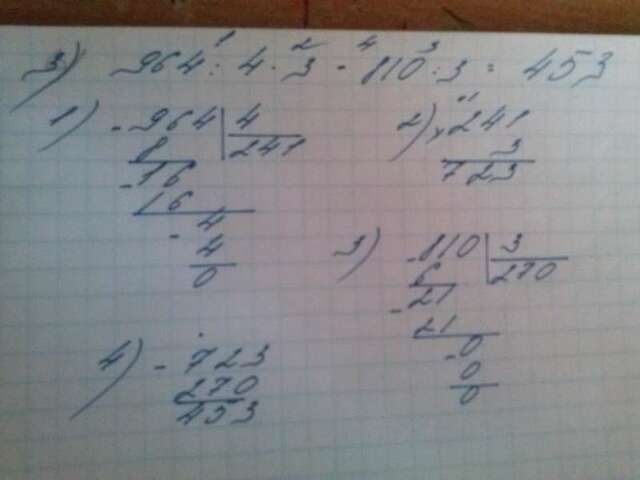 3) 964 : 4 · 3 - 810 : 3 = 453
1 2 4 3
1) - 964 | 4
8 241
- 16
16
- 4
4
0
2) × 241
3
723
3) - 810 | 3
6 270
- 21
21
- 0
0
0
4) - 723
270
453